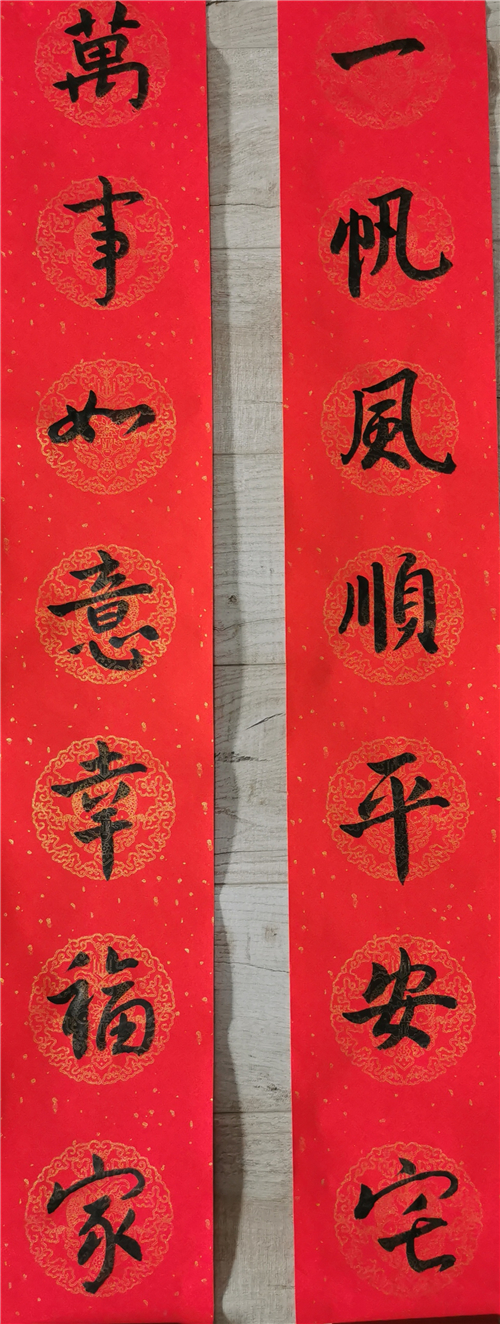 一帆風順平安宅
萬事如意幸福家